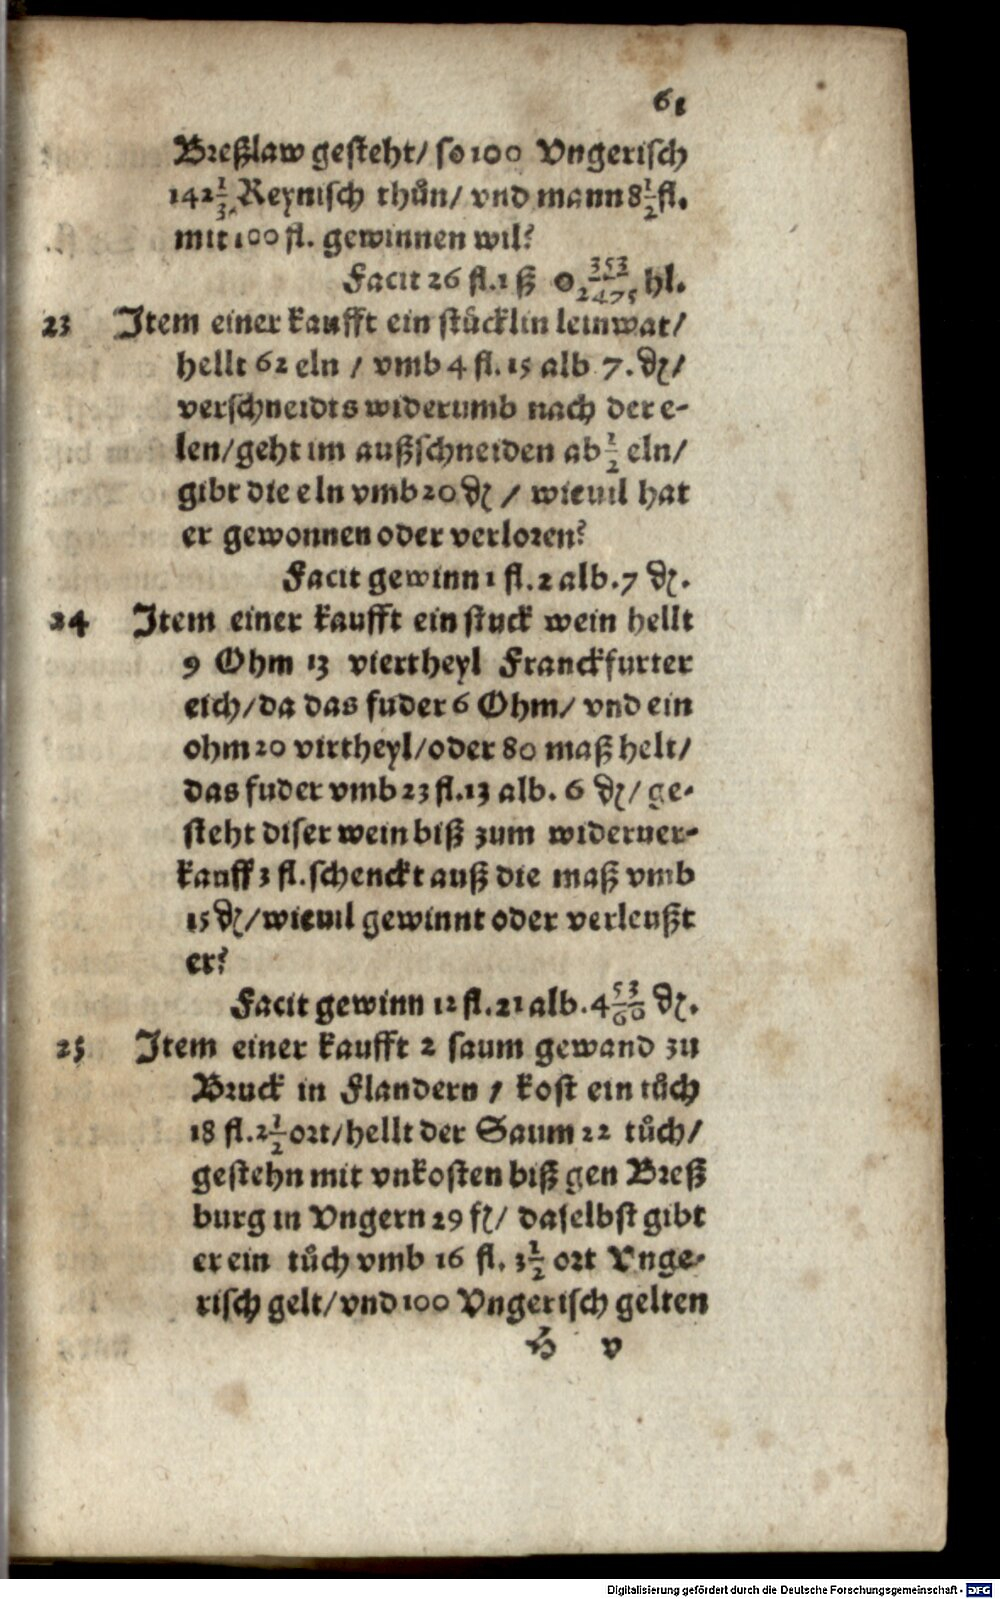 61
Breßlaw gesteht/ so 100 Vngerisch
142 1/3 Reynisch thůn/ vnd mann 8 1/2 fl.
mit 100 fl. gewinnen wil?
Facit 26 fl. 1 ß 0 353/2475 hl.
23 Item einer kaufft ein stücklin leinwat/
hellt 62 eln / vmb 4 fl. 15 alb 7. ₰/
verschneidts widerumb nach der e-
len/geht im außschneiden ab 1/2 eln/
gibt die eln vmb 20 ₰ / wieuil hat
er gewonnen oder verloren?
Facit gewinn 1 fl. 2 alb. 7 ₰.
24 Item einer kaufft ein stuck wein hellt
9 Ohm 13 viertheyl Franckfurter
eich/da das fuder 6 Ohm/ vnd ein
ohm 20 virtheyl/oder 80 maß helt/
das fuder vmb 23 fl. 13 alb. 6 ₰/ ge-
steht diser wein biß zum widerver-
kauff 3 fl. schenckt auß die maß vmb
15 ₰/wieuil gewinnt oder verleußt
er?
Facit gewinn 12 fl. 21 alb. 4 53/60 ₰.
25 Item einer kaufft 2 saum gewand zu
Bruck in Flandern / kost ein tůch
18 fl. 2 1/2 ort/hellt der Saum 22 tůch/
gestehn mit vnkosten biß gen Breß
burg in Vngern 29 fl/ daselbst gibt
er ein tůch vmb 16 fl. 3 1/2 ort Vnge-
risch gelt/vnd 100 Vngerisch gelten
H v
Digitalisierung gefördert durch die Deutsche Forschungsgemeinschaft - DFG